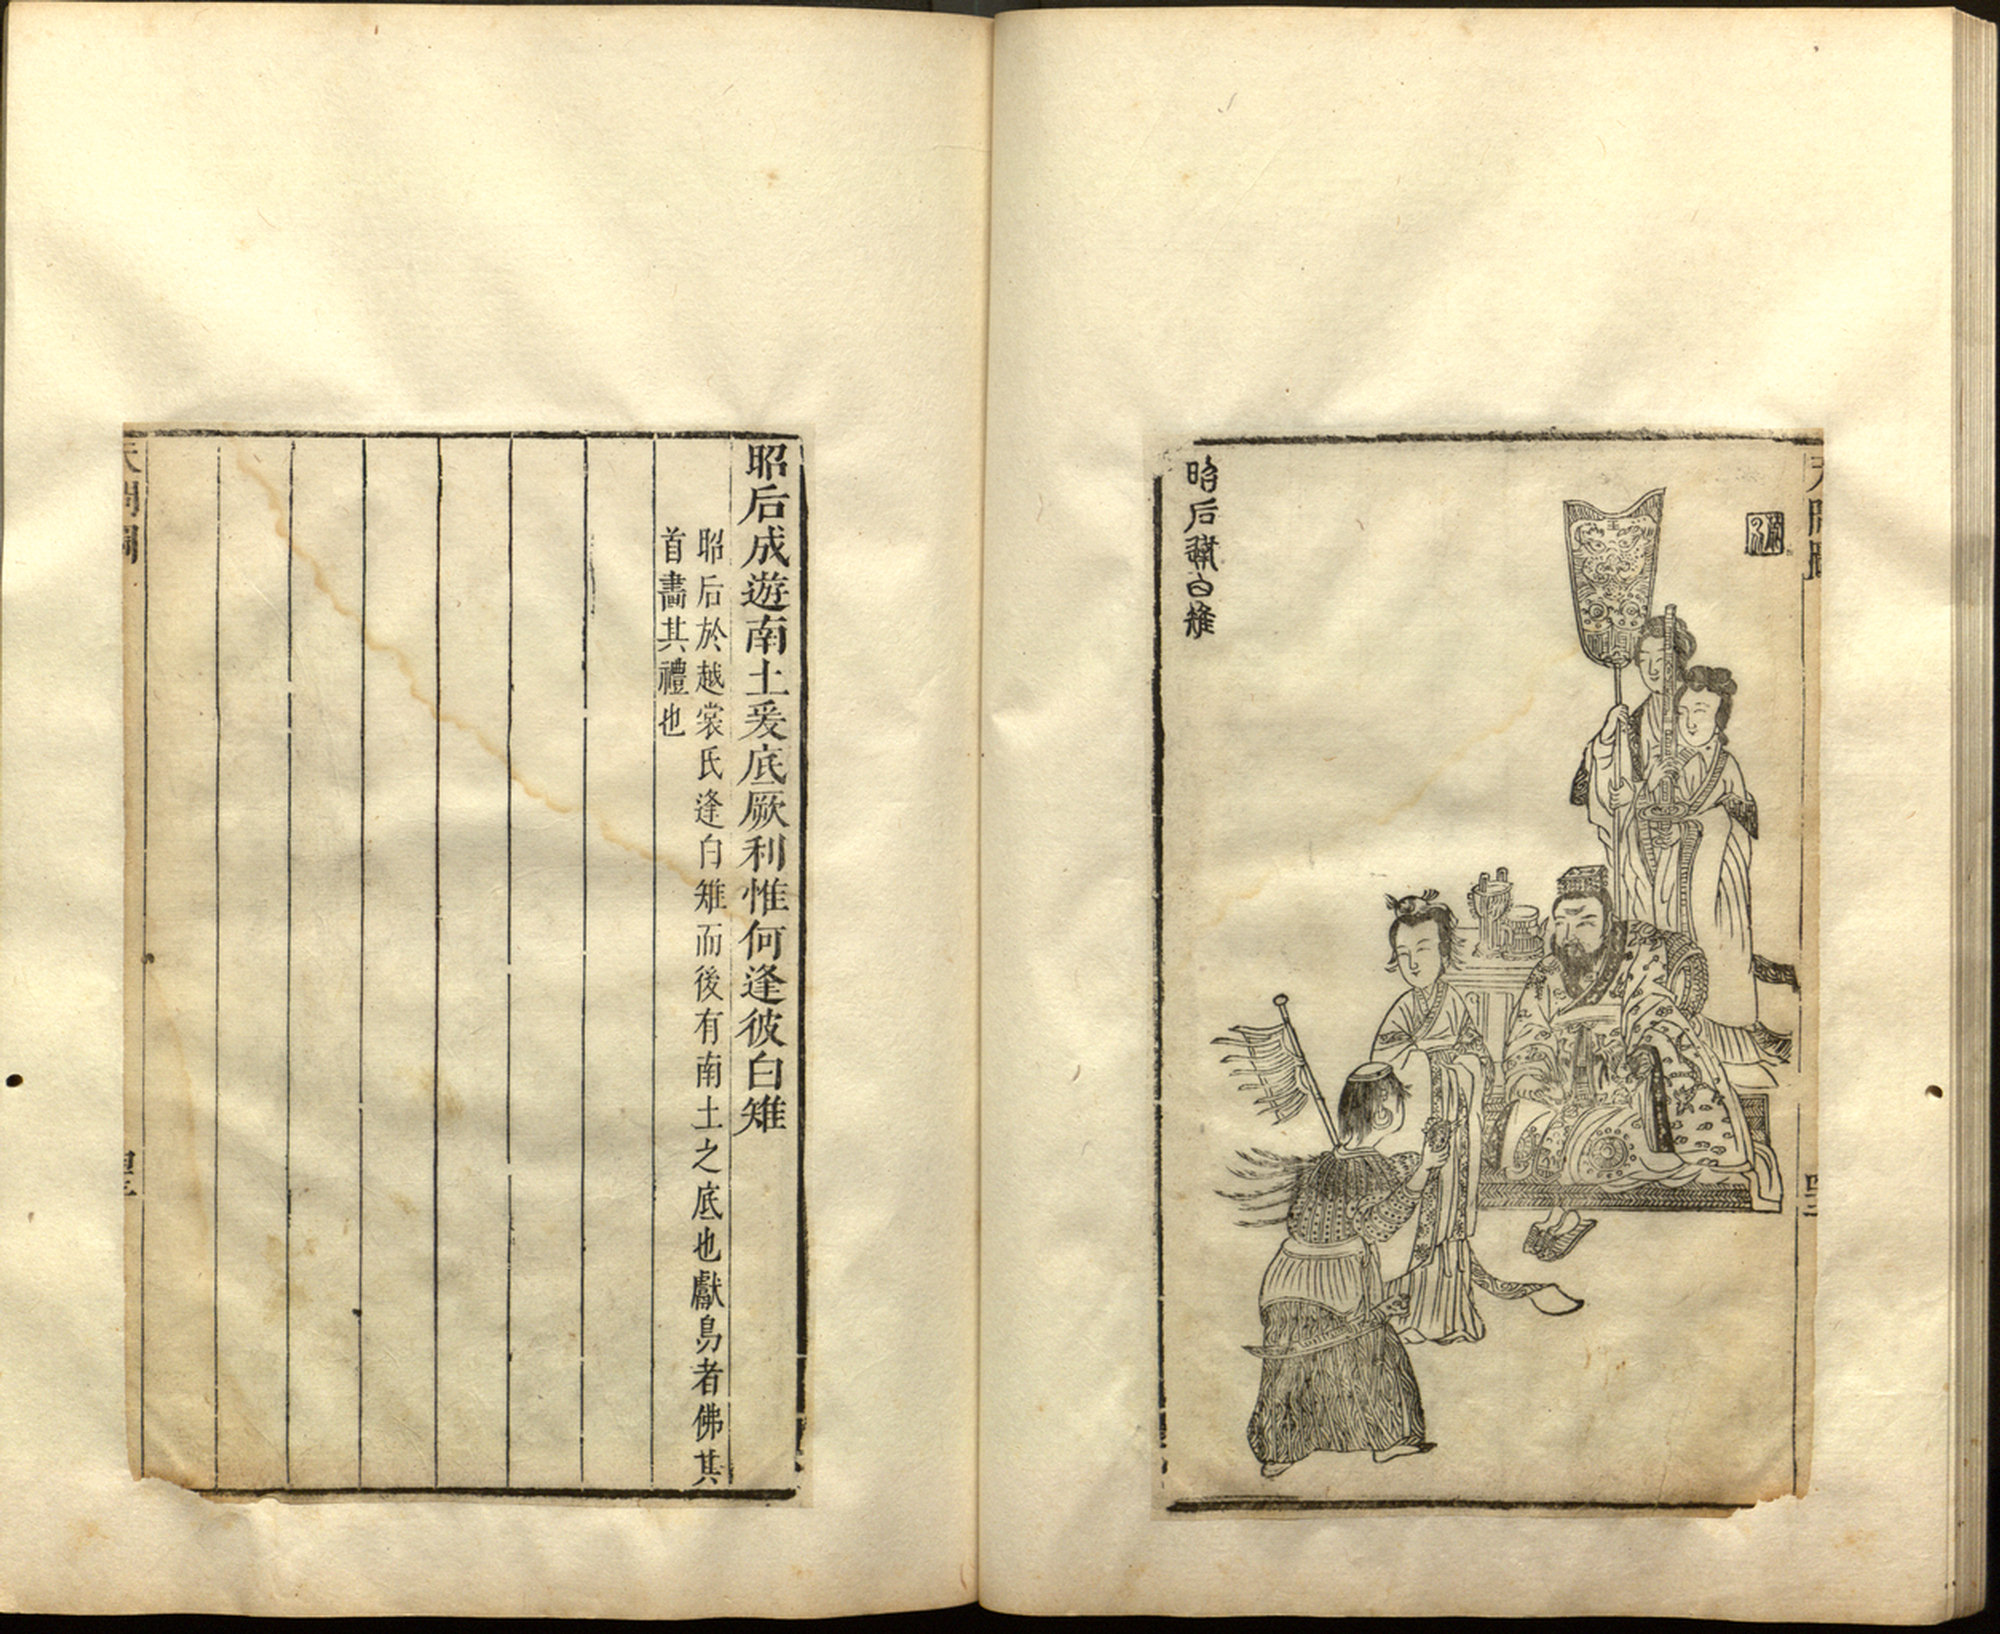 天問圖
昭后獲白雉
昭后成遊南土爰底厥利惟何逢彼白雉
昭后於越裳氏逢白雉而後有南土之底也獻鳥者佛其
首畵其禮也
天問圖